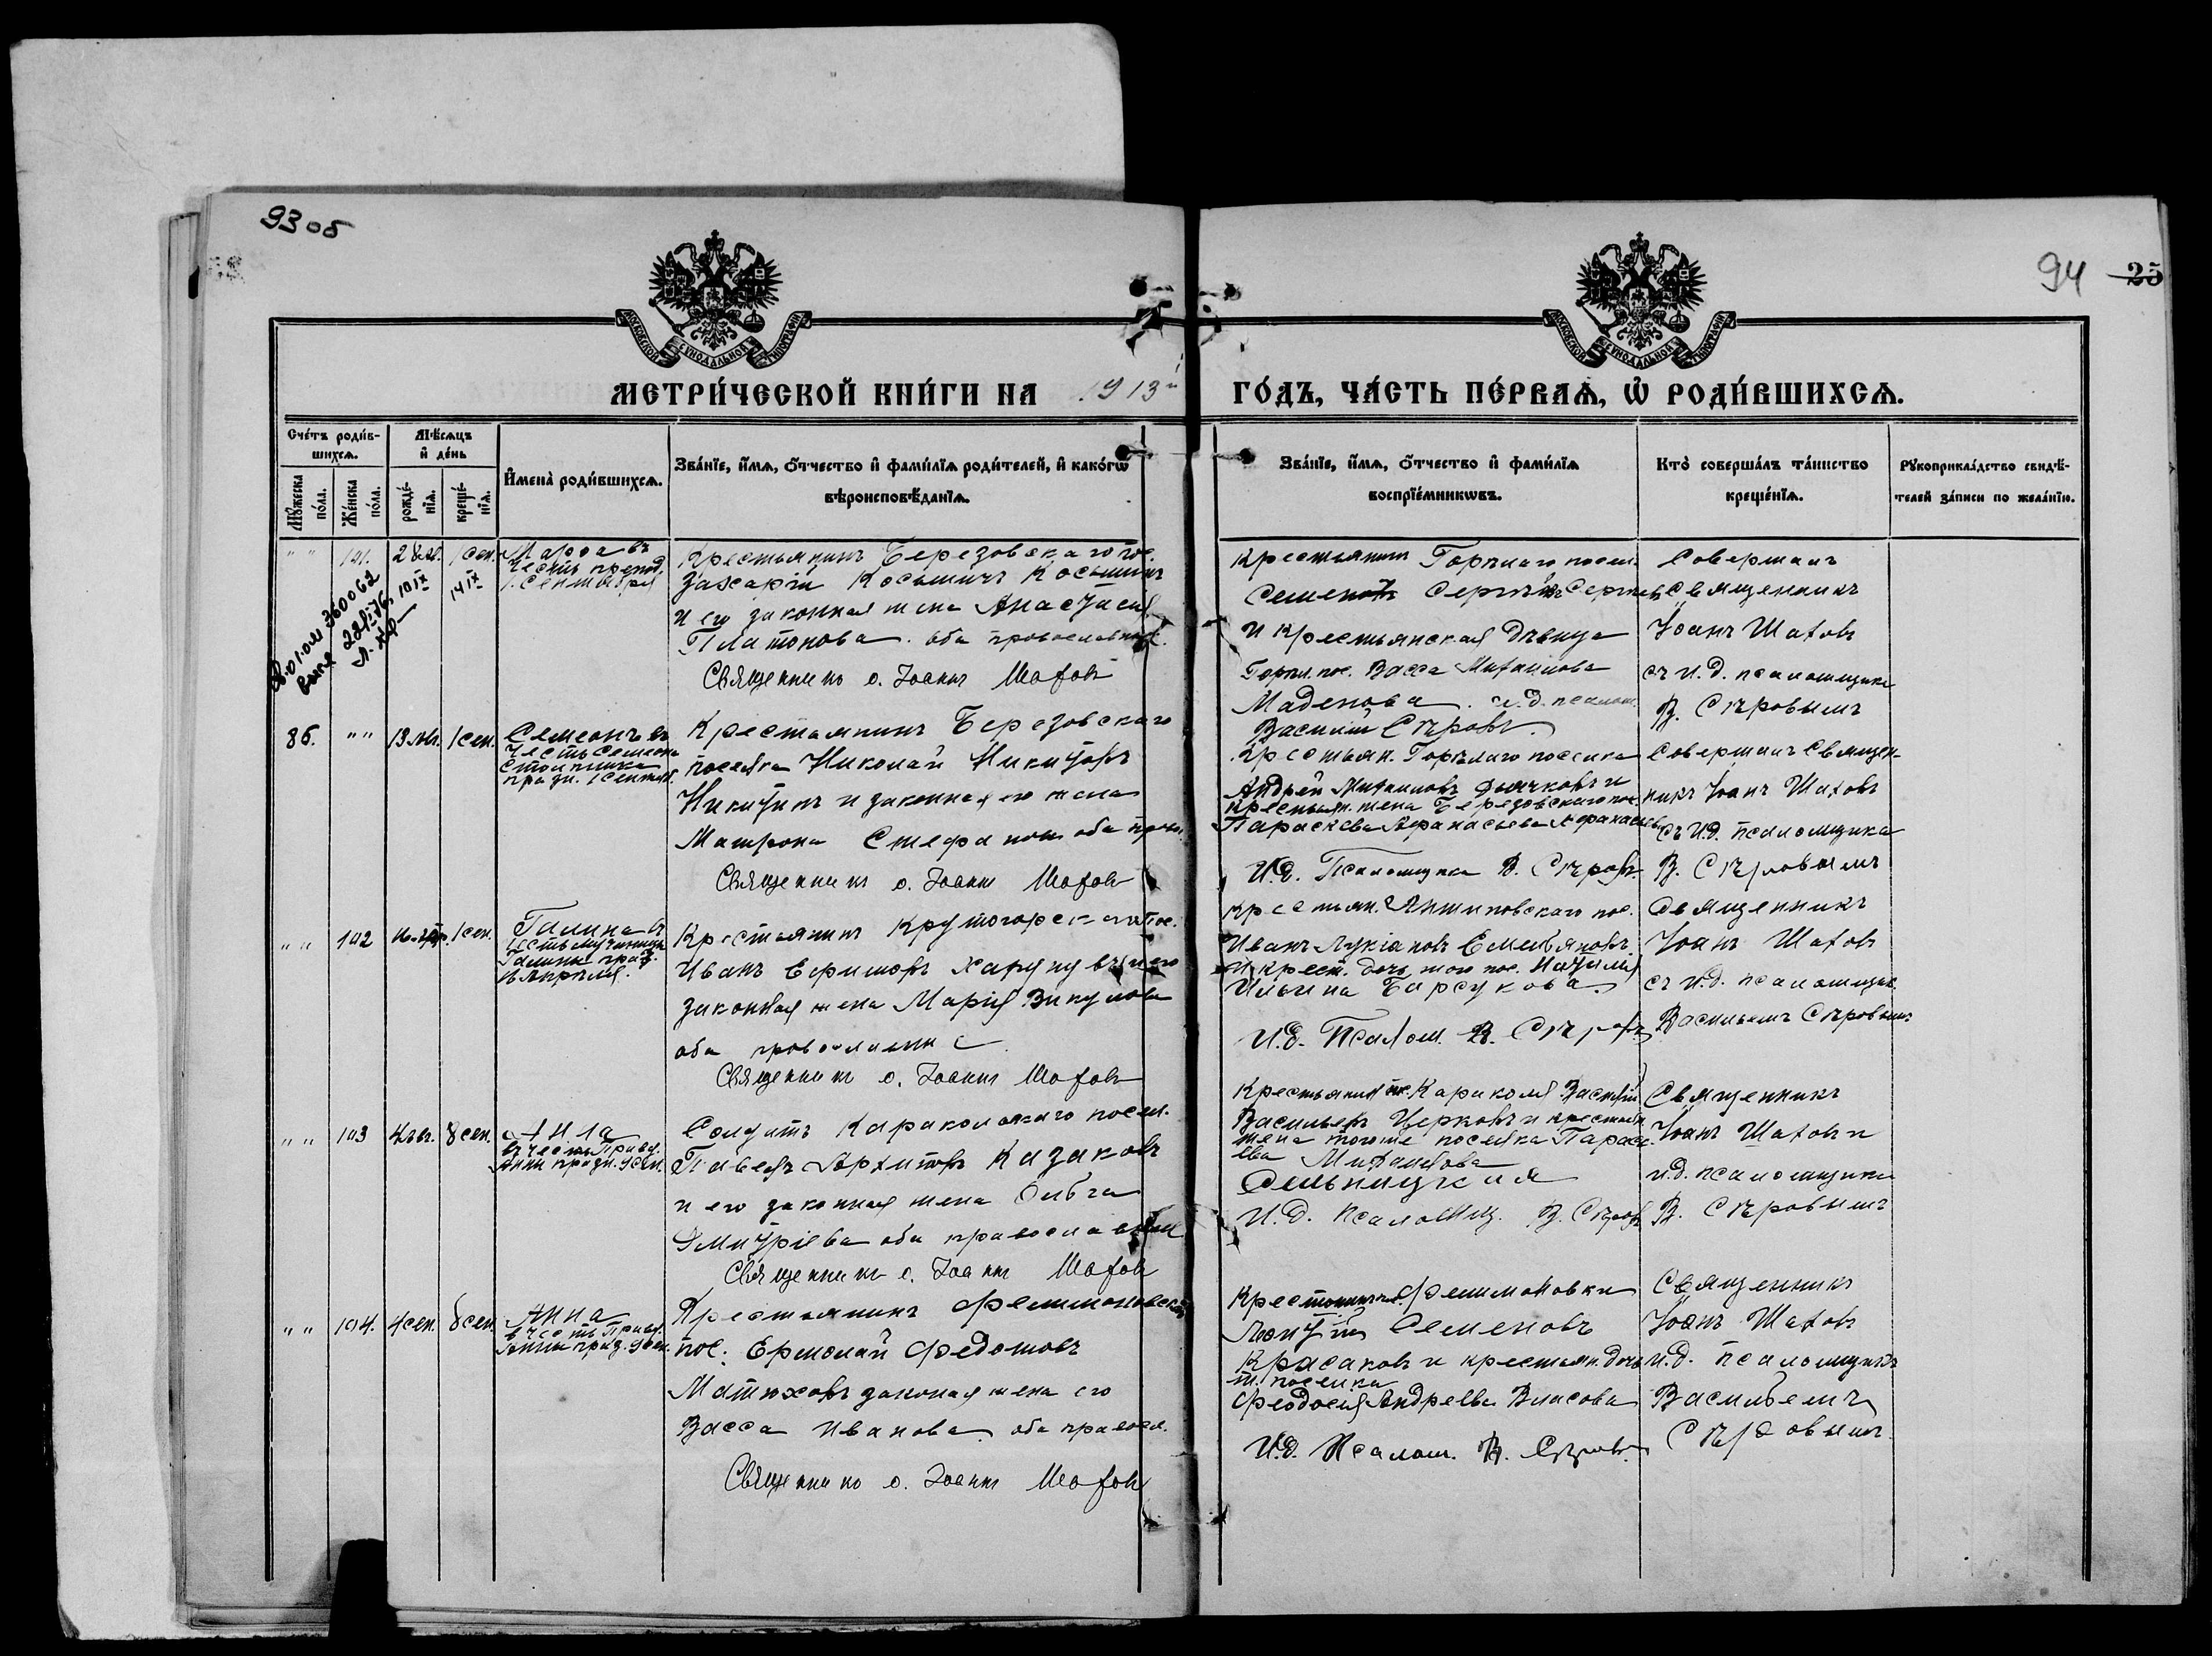 93 об
94 25
МОСКОВСКОЙ СѴНОДАЛЬНОЙ ТИПОГРАФІИ
МОСКОВСКОЙ СѴНОДАЛЬНОЙ ТИПОГРАФІИ
МЕТРИ́ЧЕСКОЙ КНИ́ГИ НА 1913й ГО́ДЪ, ЧА́СТЬ ПЕ́РВАѦ, Ѽ РОДИ́ВШИХСѦ.
Сче́тъ роди́в-
шихсѧ.
Мѣ́сѧцъ
и҆ де́нь
Мꙋ́жеска по́ла.
Же́нска по́ла.
рожде́-нїѧ.
креще́-нїѧ.
И҆мена̀ роди́вшихсѧ.
Зва́нїе, и҆́мѧ, ѻ҆́тчество и҆ фами́лїѧ роди́телей, и҆ како́гѡ
вѣроисповѣ́данїѧ.
Зва́нїе, и҆́мѧ, ѻ҆́тчество и҆ фами́лїѧ
воспрїе́мникѡвъ.
Кто̀ соверша́лъ та́инство
креще́нїѧ.
Рꙋкоприкла́дство свидѣ́-
телей за́писи по жела́нїю.
" " 101. 1 сен.
Марѳа въ
честь препод.
1. Сентября
10 IX 14 IX
360062
Крестьянинъ Березовскаго пос.
Захарій Косьмичъ Косьминъ
и его законная жена Анастасія
Платонова. оба православные.
Священникъ о. Іоаннъ Шатовъ
Крестьянинъ Горѣлаго посел.
Семенъ Сергѣевъ Сергѣевъ
и крестьянская дѣвица
Горѣл. пос. Васса Михаилова
Маденова. и.д. псалом.
Василій Сѣровъ.
Совершалъ
Священникъ
Іоанъ Шатовъ
съ и.д. псаломщика
В. Сѣровымъ
86. " " 1 сен.
Семеонъ въ
честь Семеона
столпника
празн. 1 Сентяб.
Крестьянинъ Березовскаго
поселка Николай Никитовъ
Никитинъ и законная его жена
Матрона Стефанова оба прав.
Священникъ о. Іоаннъ Шатовъ
Крестьян. Горѣлаго поселка
Андрей Михаиловъ Дьячковъ и
крестьян. жена Березовскаго пос.
Параскева Афанасьева Афанасьева
И.д. Псаломщика В. Сѣровъ.
Совершалъ Священ-
никъ Іоанъ Шатовъ
съ И.д. псаломщика
В. Сѣровымъ
" " 102 1 сен.
Галина въ
честь мученицы
Галины праз.
16 Апрѣля.
Крестьянинъ Крутогорскаго пос.
Иванъ Ефимовъ и его
законная жена Марія Викулова
оба православные
Священникъ о. Іоаннъ Шатовъ
Крестьян. Антиповскаго пос.
Иванъ Лукіановъ Емельяновъ
и крест. дочь того пос. Наталія
Ильина Барсукова.
И.д. Псалом. В. Сѣровъ
Священникъ
Іоанъ Шатовъ
съ и.д. псаломщик.
Васильемъ Сѣровымъ
" " 103 8 сен.
Анна
въ честь Прав.
Анны празн. 9 сен.
Солдатъ Каракольскаго посел.
Павелъ Архиповъ Казаковъ
и его законная жена Ольга
Дмитріева оба православны
Священникъ о. Іоаннъ Шатовъ
Крестьянинъ пос. Караколя Василій
Васильевъ Церковъ и крестьян.
жена тогоже поселка Параске-
ева Михаилова
Сельницкая
И.д. Псаломщ. В. Сѣровъ
Священникъ
Іоанъ Шатовъ и
и.д. псаломщика
В. Сѣровымъ
" " 104. 4 сен. 8 сен.
Анна
въ честь Прав.
Анны празд. 9 сен.
Крестьянинъ Филимоновскаго
пос. Ермолай Федотовъ
Матюховъ законая жена его
Васса Иванова оба правосл.
Священникъ о. Іоаннъ Шатовъ
Крестьянинъ Филимоновки
Семеновъ
Красаковъ и крестьян. дочь
т. поселка
Феодосія Андреева Власова
И.д. Псалом. В. Сѣровъ.
Священникъ
Іоанъ Шатовъ
и.д. псаломщикъ
Васильемъ
Сѣровымъ.